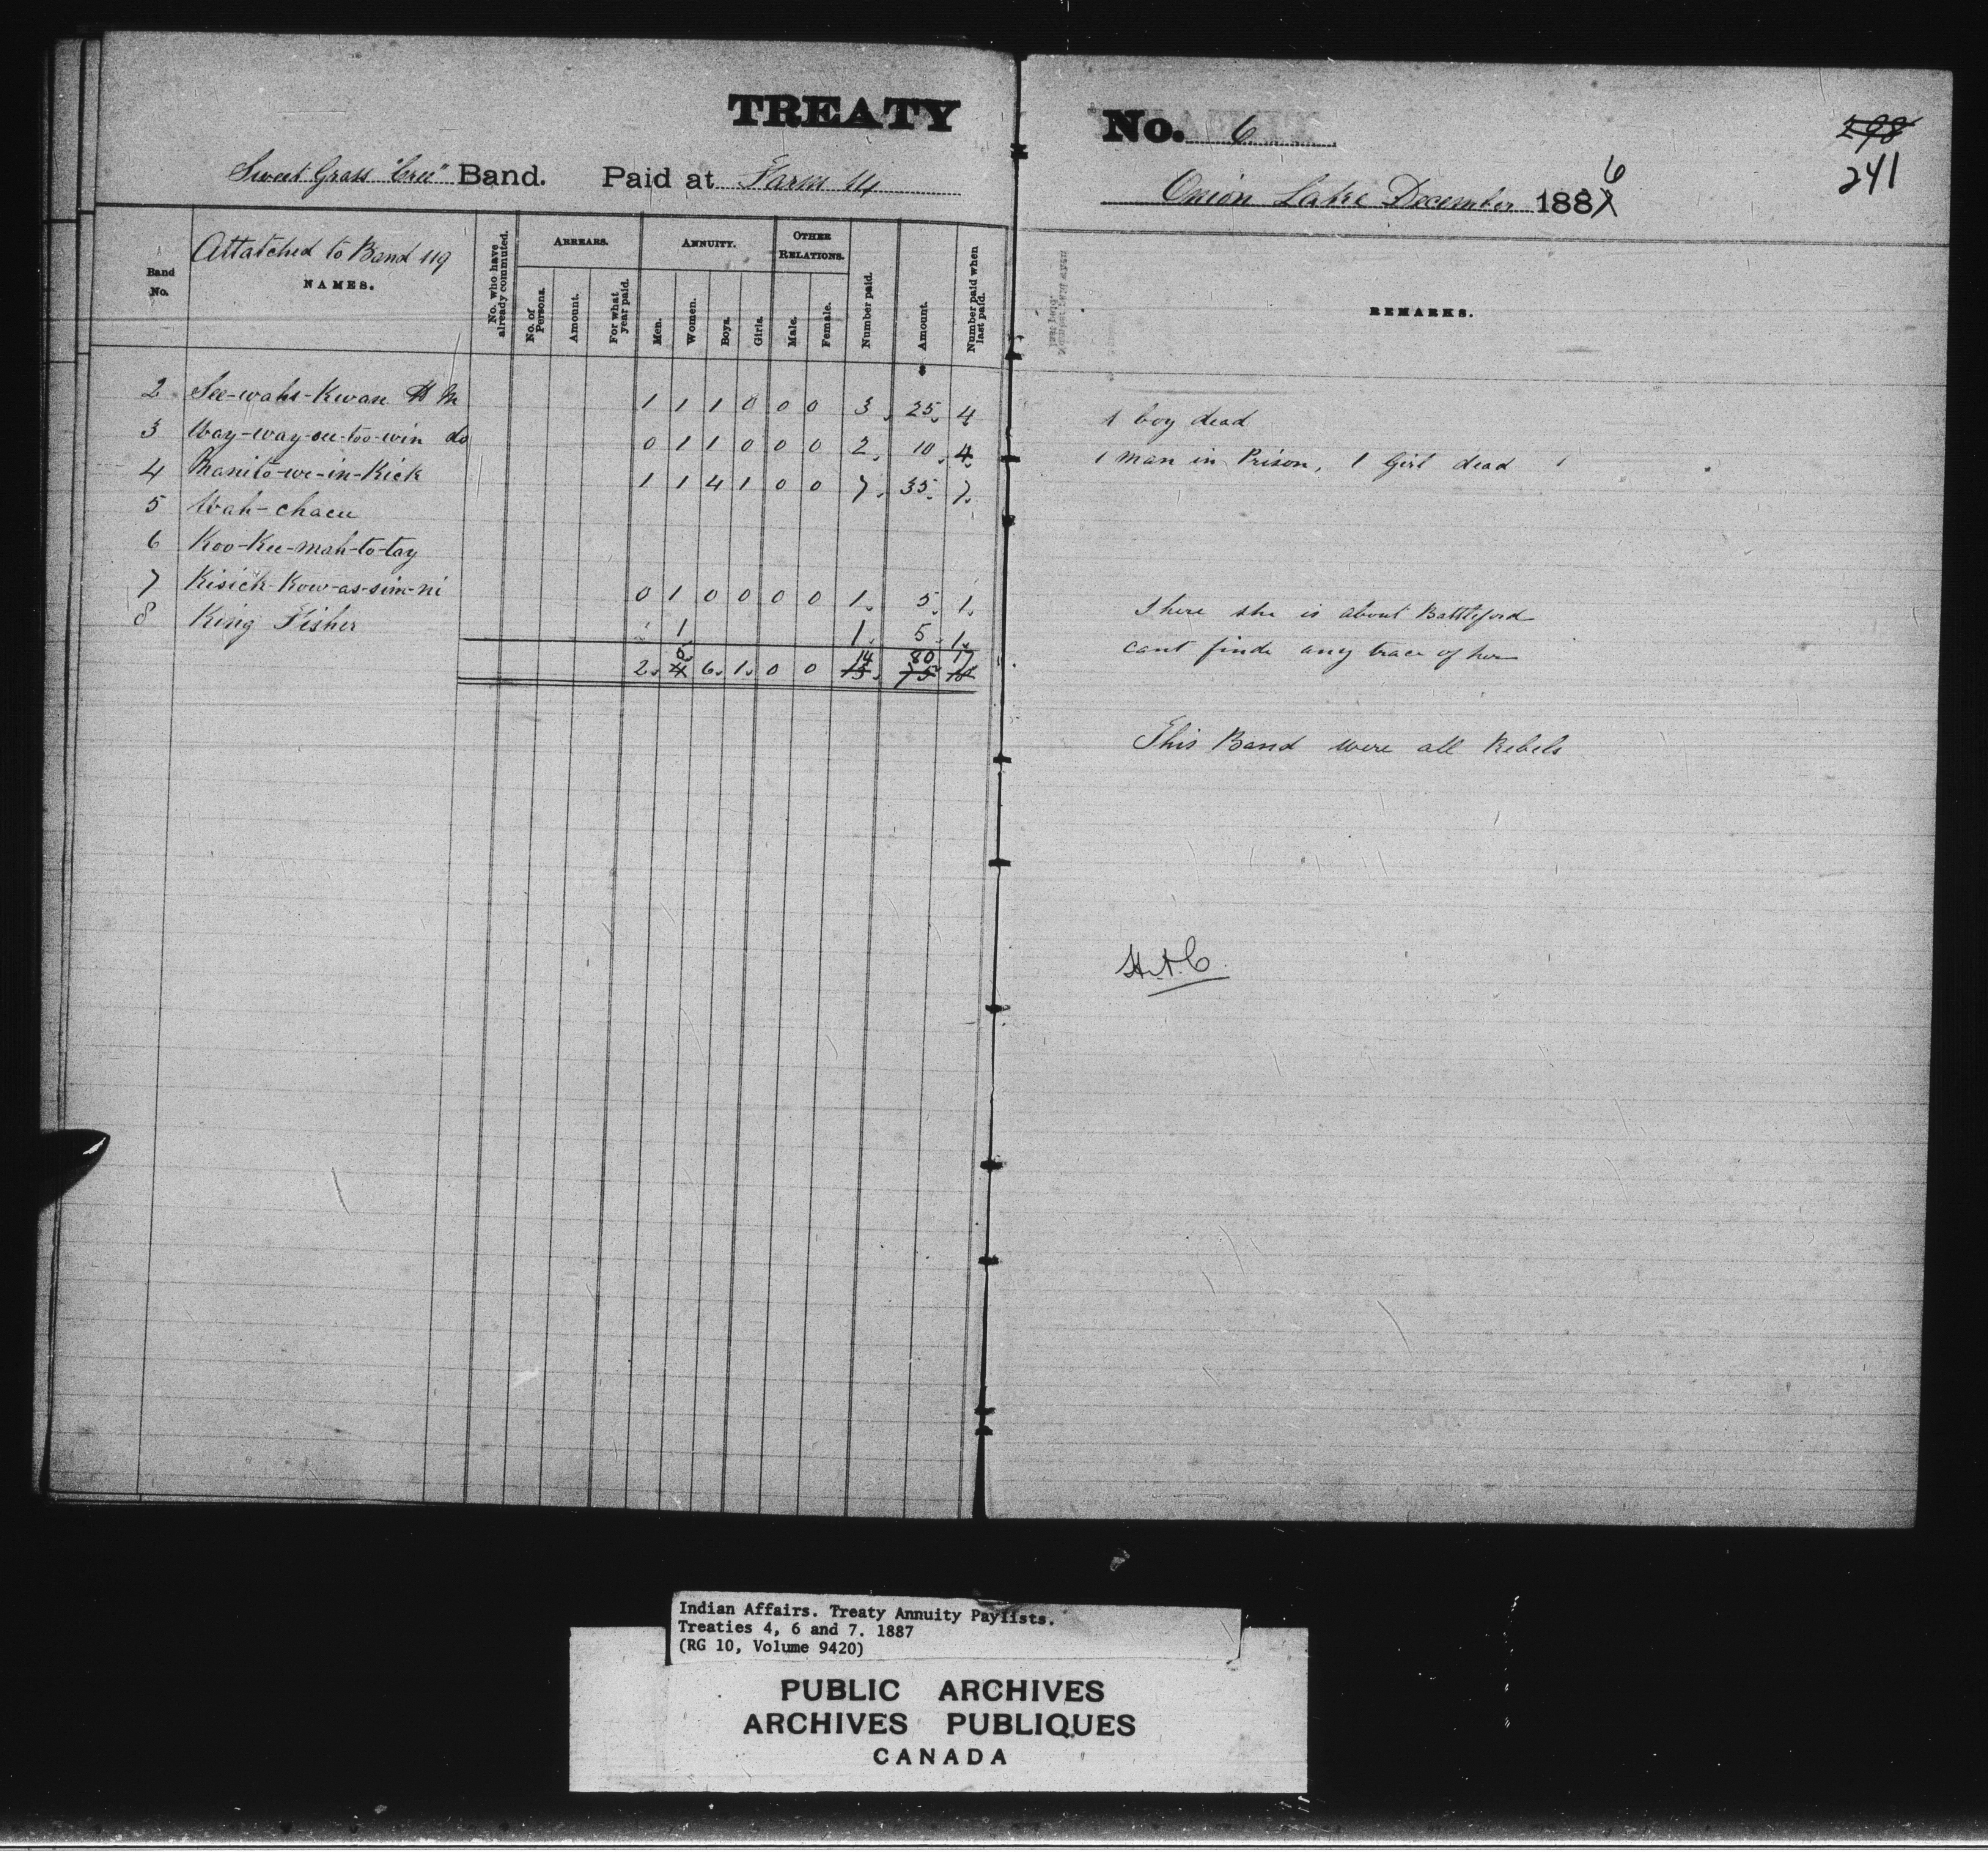 TREATY No. 6
298
241
Sweet Grass "Cree" Band. Paid at Farm 114
Onion Lake December 1886
Attatched to Band 119
Band No.
NAMES.
No. who have already commuted.
ARREARS.
No. of Persons.
Amount.
For what year paid.
ANNUITY.
Men.
Women.
Boys.
Girls.
OTHER RELATIONS.
Male.
Female.
Number paid.
Amount.
Number paid when last paid.
REMARKS.
2 See-wahs-Kwan 1 1 1 0 0 0 3 25 4 1 boy dead
3 Way-way-see-too-win do 0 1 1 0 0 0 2 10 4 1 man in Prison, 1 Girl dead
4 Manito-we-in-Kick 1 1 4 1 0 0 7 35 7
5 Wah-chaeu
6 Koo-Kee-mah-to-tay
7 Kisich-Kow-as-sim-ni 0 1 0 0 0 0 1 5 1 There she is about Battleford
8 King Fisher 1 1 5 1 cant finde any trace of her
5 14 80 17
2 4 6 1 0 0 13 75 16
This Band were all Rebels
Indian Affairs. Treaty Annuity Paylists.
Treaties 4, 6 and 7. 1887
(RG 10, Volume 9420)
PUBLIC ARCHIVES
ARCHIVES PUBLIQUES
CANADA